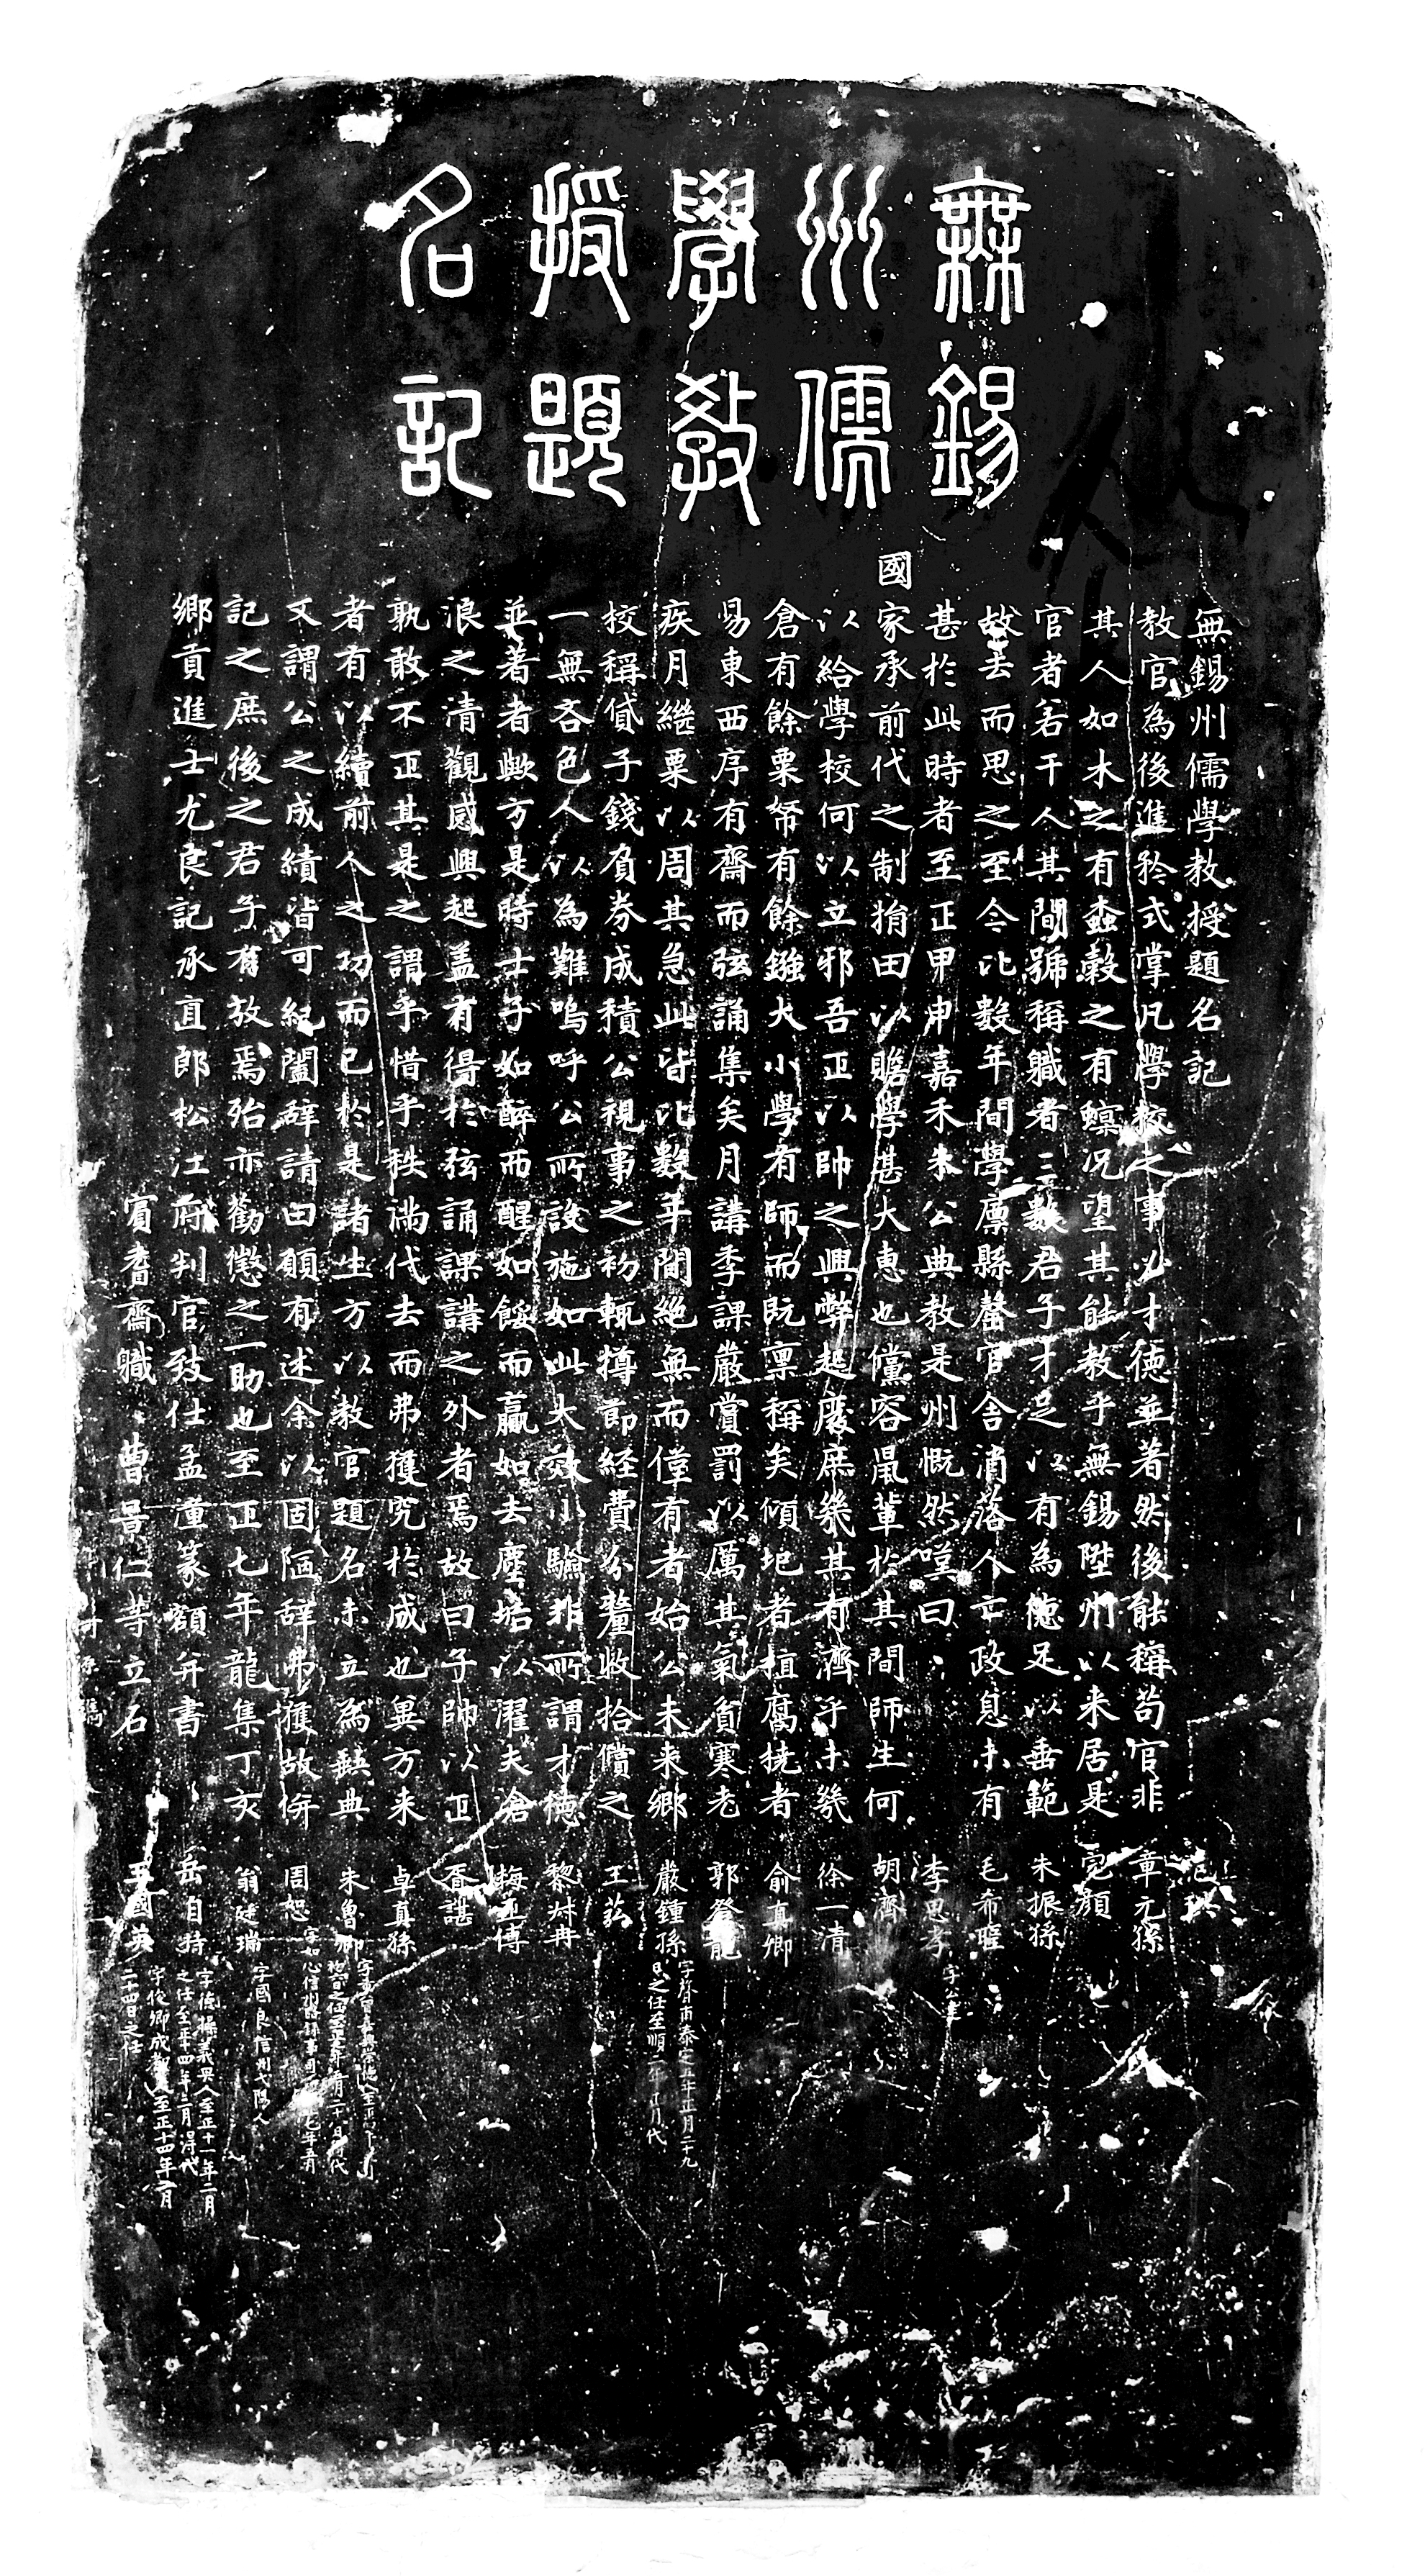 無錫
州儒
學教
授題
名記
無錫州儒學教授題名記
教官為後進矜式掌凡學校之事必才德並著然後能稱苟官非
其人如木之有蠹穀之有螟況望其能教乎無錫陞州以来居是
官者若干人其間號稱職者三數君子才足以有為德足以垂範
故去而思之至今比数年間學廪縣罄官舍消落人亡政息未有
甚於此時者至正甲申嘉禾朱公典教是州慨然嘆曰
國家承前代之制捐田以贍學甚大惠也儻容鼠輩於其間師生何
以給學校何以立邪吾正以帥之興弊起廢庶幾其有濟乎未幾
倉有餘粟帑有餘鏹大小學有師而既稟稱矣傾圯者植腐撓者
易東西序有齋而弦誦集矣月講季課嚴賞罰以厲其氣貧寒老
疾月繼粟以周其急此皆比数年間絶無而僅有者始公未来鄉
校稱貸子錢負券成積公視事之初輒撙節経費分釐收拾償之
一無吝色人以為難嗚呼公所設施如此大效小驗非所謂才德
並著者歟方是時士子如醉而醒如餒而贏如去塵坫以濯夫滄
浪之清觀感興起盖有得於弦誦課講之外者焉故曰子帥以正
孰敢不正其是之謂乎惜乎秩満代去而弗獲究於成也異方来
者有以續前人之功而已於是諸生方以教官題名未立為缺典
又謂公之成績皆可紀闔辭請曰願有述余以固陋辞弗獲故併
記之庶後之君子有攷焉殆亦勸懲之一助也至正七年龍集丁亥
鄉貢進士尤良記承直郎松江府判官致仕孟潼篆額并書
賓耆齋職曹景仁等立石
章元孫
寔顔
朱振孫
毛希暒
李思孝
胡齊
徐一清
俞真卿
郭登龍
嚴鍾孫 字聲甫泰定五年正月二十九日之任至順二年正月代
王蒻
黎?冉
梅?傅
胥諶
卓真孫
朱魯卿
周恕
翁廷瑞 字國良信州弋陽人
岳自持 字德操義興人至正十一年二月之任至十四年二月得代
王國英 字俊卿成都人至正十四年二月二十四日之任